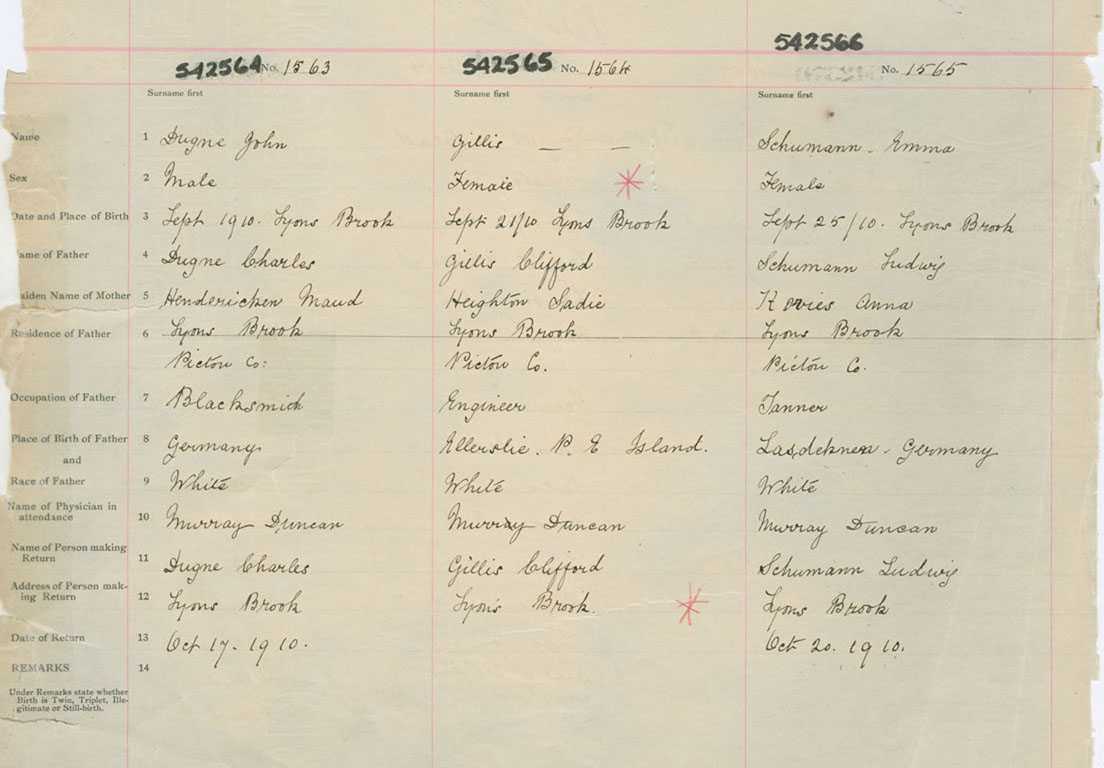 542566
542564 No. 1563 542565 No. 1564 No. 1565
Surname first Surname first Surname first
Name 1 Dugne John Gillis — — Schumann - Emma
Sex 2 Male Female Female
Date and Place of Birth 3 Sept 1910. Lyons Brook Sept 21/10 Lyons Brook Sept 25/10. Lyons Brook
ame of Father 4 Dugne Charles Gillis Clifford Schumann Ludwig
aiden Name of Mother 5 Hendericken Maud Heighton Sadie Anna
Residence of Father 6 Lyons Brook Lyons Brook Lyons Brook
Pictou Co: Pictou Co. Pictou Co.
Occupation of Father 7 Blacksmith Engineer Tanner
Place of Birth of Father 8 Germany. Ellerslie. P. E Island. Germany
and
Race of Father 9 White White White
Name of Physician in
attendance 10 Murray Duncan Murray Duncan Murray Duncan
Name of Person making
Return 11 Dugne Charles Gillis Clifford Schumann Ludwig
Address of Person mak-
ing Return 12 Lyons Brook Lyons Brook. Lyons Brook
Date of Return 13 Oct 17. 1910. Oct 20. 1910.
REMARKS 14
Under Remarks state whether
Birth is Twin, Triplet, Ille-
gitimate or Still-birth.